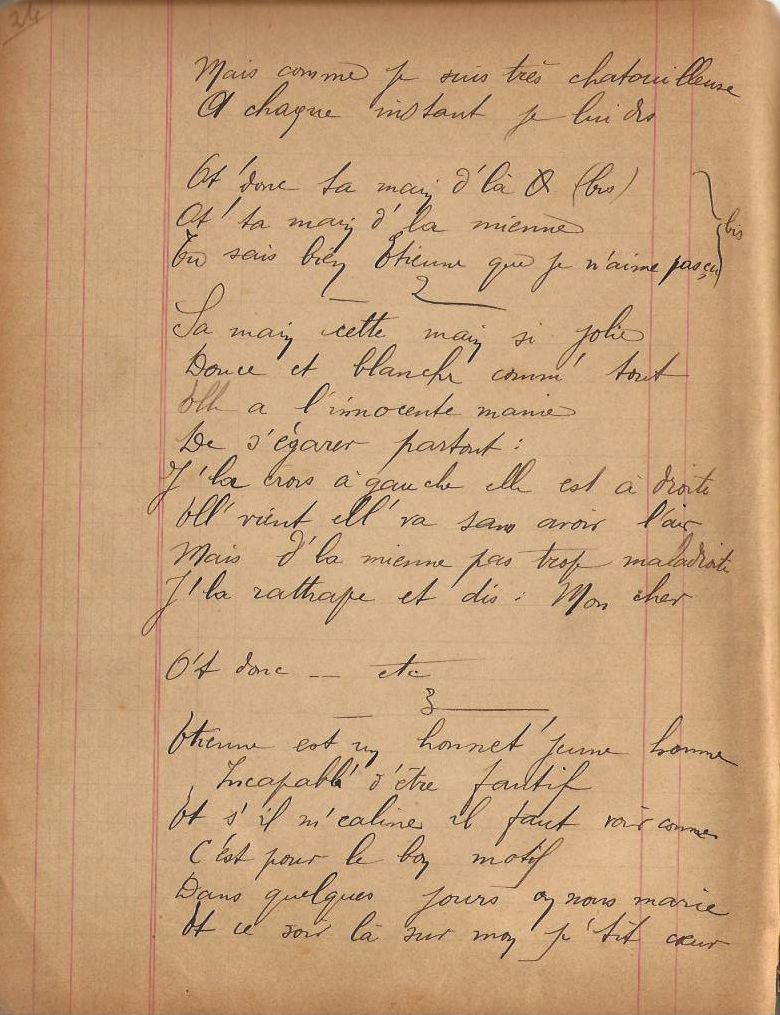 24
Mais comme je suis très chatouilleuse
A chaque instant je lui dis
Ot' donc ta main d'là (bis)
Ot' ta main d' la mienne
bis
Tu sais bien Etienne que je n'aime pas ça
2
Sa main cette main si jolie
Douce et blanche comm' tout
Elle a l'innocente manie
De s'égarer partout :
J'la crois à gauche elle est à droite
Ell' vient ell' va sans avoir l'air
Mais d'la mienne pas trop maladroite
J'la rattrape et dis : Mon cher
O't donc — etc
3
Etienne est un honnet' jeune homme
Incapabl' d'être fautif
Et s'il m'caline il faut voir comme
C'est pour le bon motif
Dans quelques jours on nous marie
Et ce soir là sur mon p'tit cœur